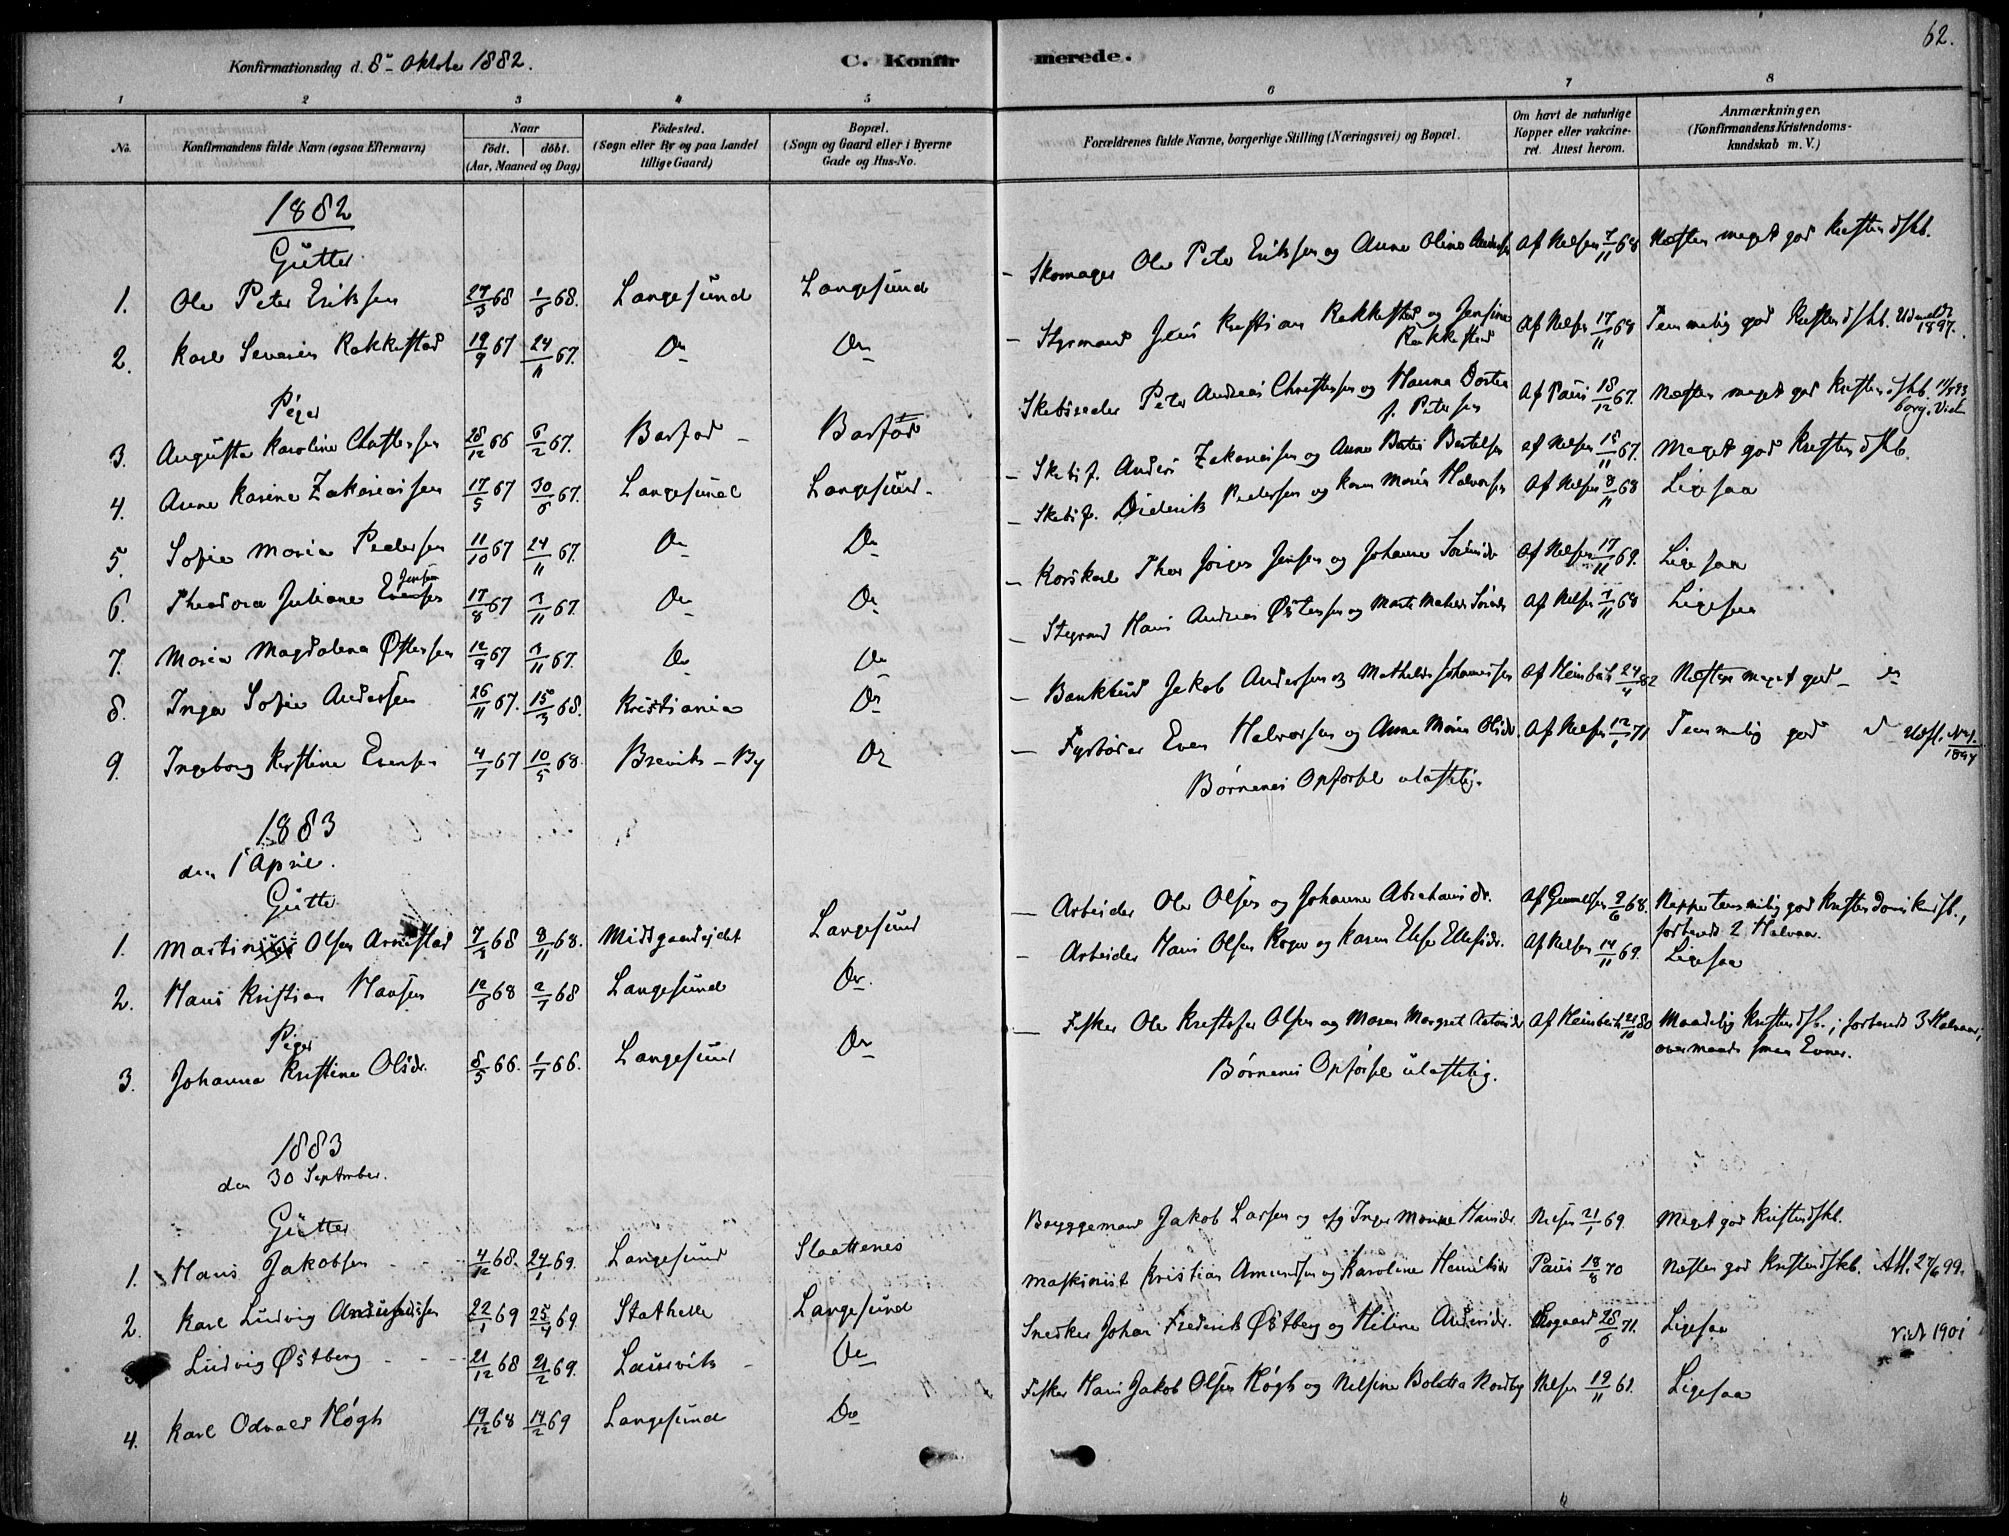 62.
Konfirmationsdag d. 8de Oktober 1882. C. Konfirmerede.
1 2 3 4 5 6 7 8
No. Konfirmandens fulde Navn (ogsaa Efternavn) Naar født. døbt. (Aar, Maaned og Dag) Fødested. (Sogn eller By og paa Landet tillige Gaard) Bopæl. (Sogn og Gaard eller i Byerne Gade og Hus-No. Forældrenes fulde Navne, borgerlige Stilling (Næringsvei) og Bopæl. Om havt de naturlige Kopper eller vakcineret. Attest herom. Anmærkninger. (Konfirmandens Kristendomskundskab m. V.)
1882
Gutter
1. Ole Peter Eriksen 27/3 68 1/6 68. Langesund Langesund – Skomager Ole Peter Eriksen og Anne Oline Andersen Af Nelsen 7/11 68 Næsten meget god Kristendskb.
2. Karl Severin Rakkestad 19/9 67 24/11 67. Do Do – Styrmand Jens Kristian Rakkestad og Jensine Rakkestad Af Nelsen 17/11 68 Temmelig god Kristendskb. Udmeldt 1897.
Piger
3. Augusta Karoline Christensen 28/12 66 6/2 67. Barfod – Barfod Skibsreder Peter Andreas Christensen og Hanna Dortea f. Petersen Af Paus 18/12 67. Næsten meget god Kristendskb. 11/8 93 borg. Viet
4. Anne Karine Zakariassen 17/5 67 30/6 67. Langesund Langesund. – Skibsf. Anders Zakariassen og Anne Bertelsen af Nelsen 18/11 67. Meget god Kristendskb.
5. Sofie Maria Pedersen 11/10 67 24/11 67. Do Do – Skibsf. Diderik Pedersen og Karen Marie Halvorsen Af Nelsen 8/11 68 Ligesaa
6. Theodora Juliane Evensen Jensen 17/8 67 3/11 67. Do Do – Thor Jørgen Jensen og Johanne Af Nelsen 17/11 69. Ligesaa
7. Maria Magdalena Østensen 12/9 67 3/11 67. Do Do – Styrmand Hans Andreas Østensen og Af Nelsen 7/11 68 Ligesaa
8. Inga Sofie Andersen 26/11 67. 15/3 68. Kristiania Do – Bankbud Jakob Andersen og Mathilde Johannessen Af Heimbeck 24/4 82 Næsten meget god – do
9. Ingeborg Kristine Evensen 4/7 67 10/5 68. Brevik – By Do – Fyrbøder Even Halvorsen og Anne Marie Olsdr. Af Nelsen 12/1 71 Temmelig god 1894
Børnenes Opførsel ulastelig.
1883
den 1 April.
Gutter
1. Martin Olsen Aarnestad 7/3 68 8/11 68. Midtgaardejdet Langesund – Arbeider Ole Olsen og Johanne Abrahamsdr. 9/6 68. Neppe temmelig god Kristendomskndsk., forberedt 2 Halvaar.
2. Hans Kristian Hansen 12/6 68 2/7 68 Langesund Do. – Arbeider Hans Olsen og Karen Else Af Nelsen 14/11 69. Ligesaa
Piger
3. Johanna Kristine Olsdr. 8/5 66. 1/7 66. Langesund Do – Fisker Ole Kristofer Olsen og Maren Margret Antonidr Af Heimbeck 21/10 80 Maadelig Kristendskb.; forberedt 3 Halvaar, overmaade smaa Evner.
Børnenes Opførsel ulastelig.
1883
den 30 September.
Gutter
1. Hans Jakobsen 4/12 68. 24/1 69. Langesund Slaattenes Bryggemand Jakob Larsen og Inger Marie Hansdr. Nelsen 21/1 69. Meget god Kristendskb.
2. Karl Ludvig Amundsen 22/1 69 25/4 69. Stathelle Langesund Maskinist Kristian Amundsen og Karoline Henriksdr Paus 18/8 70 Næsten god Kristendskb. Att. 27/6 99.
3. Ludvig Østberg 21/12 68 21/2 69. Laurvik Do Snedker Johan Frederik Østberg og Heline Andersdr. 28/6 71. Ligesaa Viet 1901
4. Karl Odvald Høgh 19/12 68 14/2 69 Langesund Do Fisker Hans Jakob Olsen Høgh og Nelsine Boletta Nordby Nelsen 19/11 Ligesaa